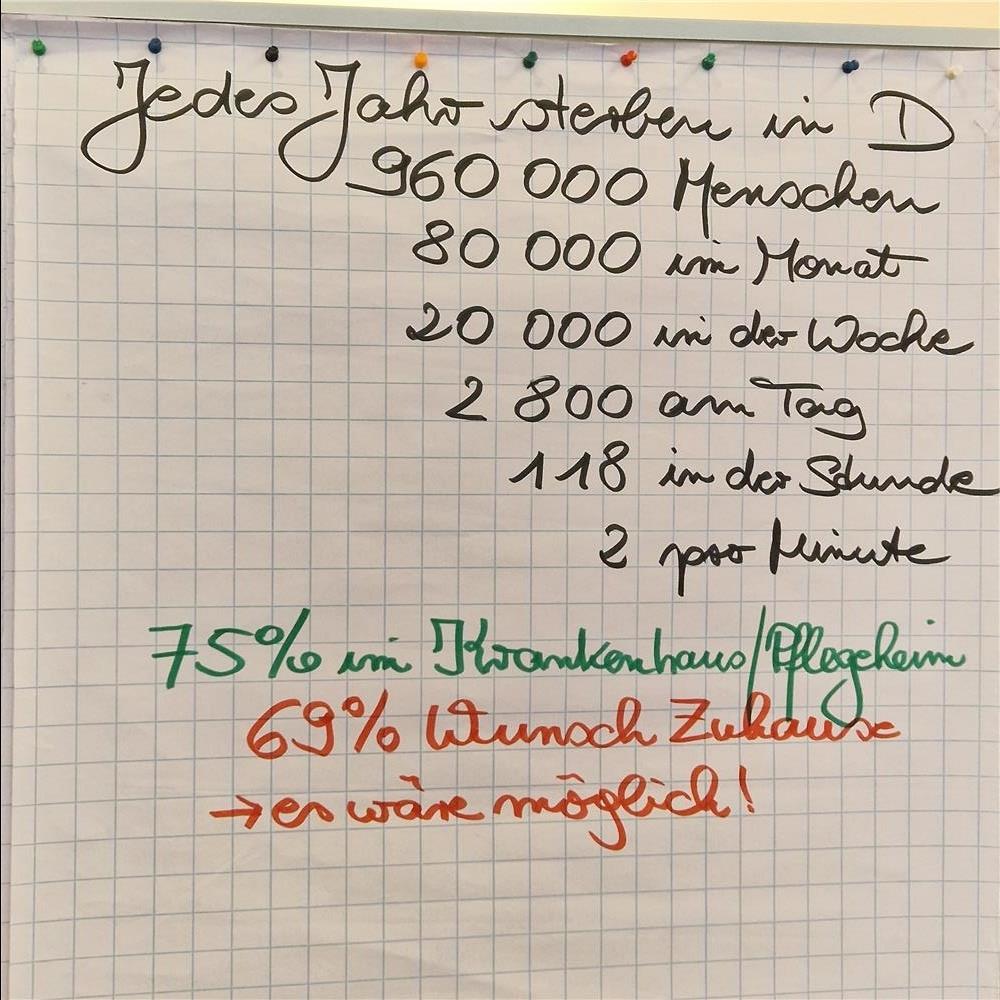 Jedes Jahr sterben in D
960 000 Menschen
80 000 im Monat
20 000 in der Woche
2 800 am Tag
118 in der Stunde
2 pro Minute
75% im Krankenhaus/Pflegeheim
69% Wunsch Zuhause
→ es wäre möglich!